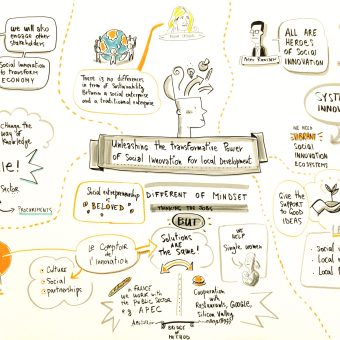 we will also
engage other
stakeholders
Social Innovation
to transform
ECONOMY
change the
way of
knowledge
Sector
There is no differences
in term of Sustainability
Between a social enterprise
and a traditional enterprise
ALL ARE
HEROES
OF SOCIAL
INNOVATION
Unleashing the transformative Power
of Social Innovation for local Development
SYSTE
INNOV
WE NEED
VIBRANT
SOCIAL
INNOVATION
ECOSYSTEMS
Social entrepreneurship
IS
BELOVED
DIFFERENT OF MINDSET
BUT
Solutions
ARE
the Same!
GIVE the
SUPPORT
to GOOD
IDEAS
Le Comptoir
de
l'innovation
Culture
Social
partnerships
WE
HELP
Single women
in FRANCE
We WORK with
the PUBLIC SECTOR
e.g APEC
Cooperation
with
Restaurants, GOOGLE,
Silicon Valley
Social
Local
Local